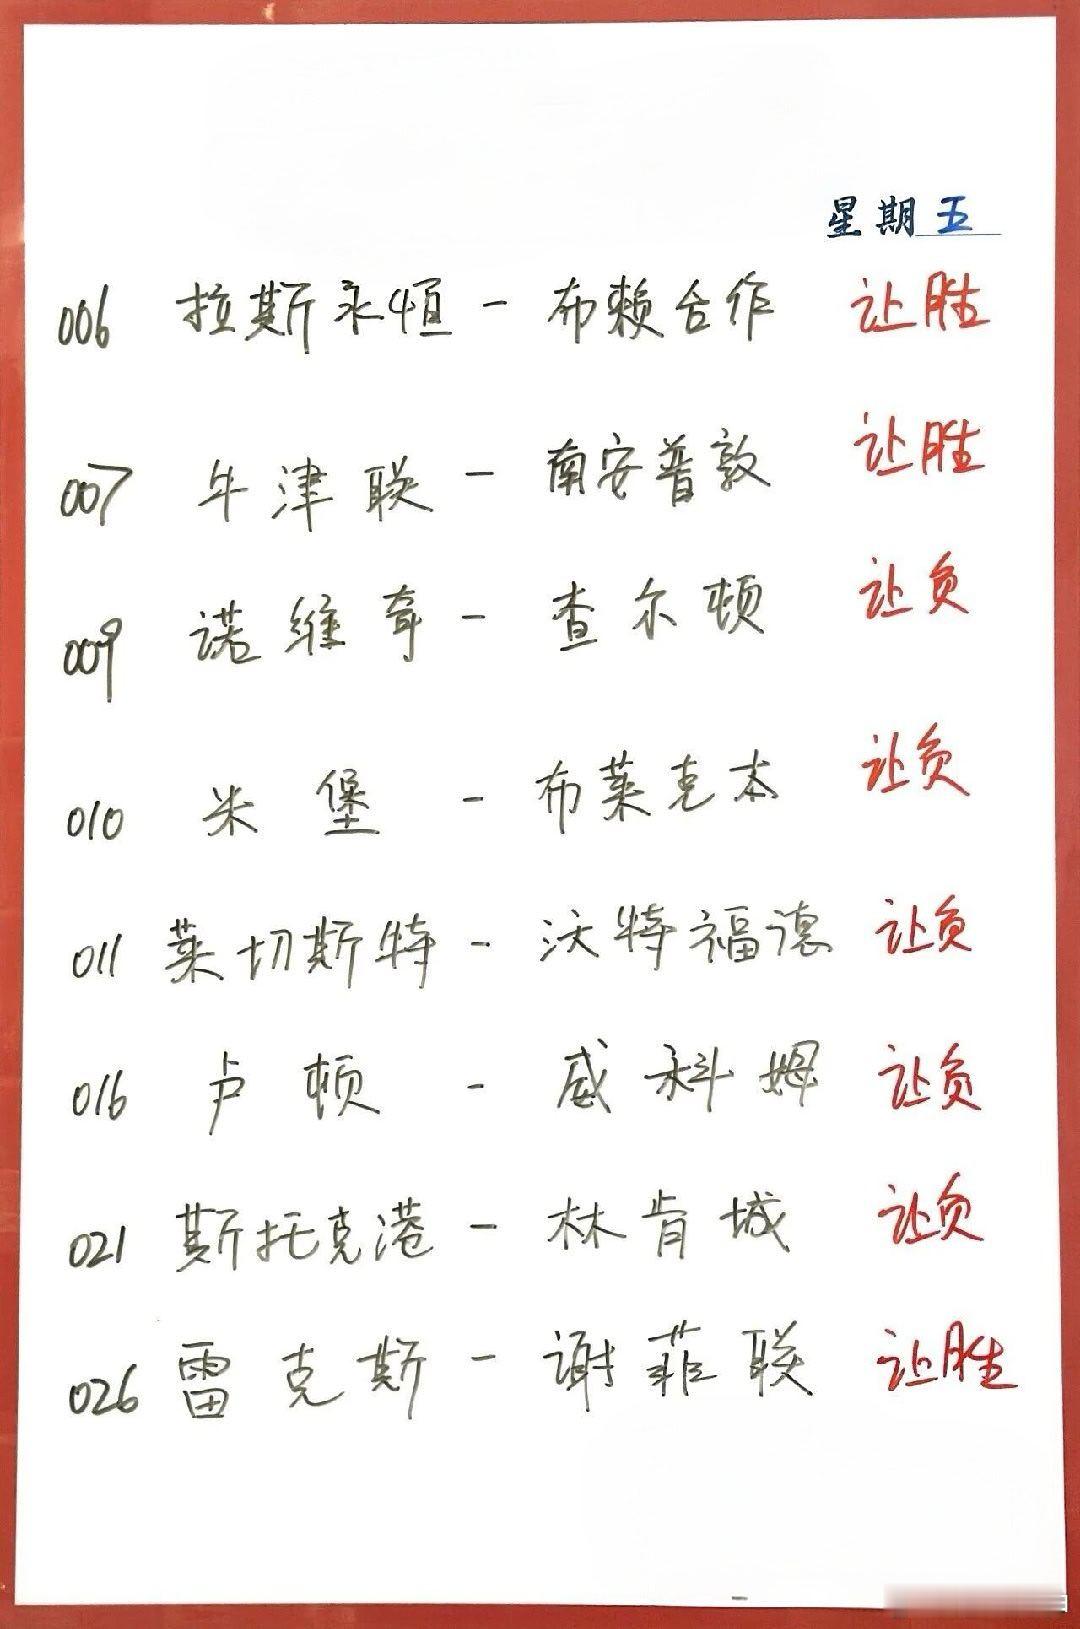 星期五
006 拉斯永恒 - 布赖合作 让胜
007 牛津联 - 南安普敦 让胜
009 诺维奇 - 查尔顿 让负
010 米堡 - 布莱克本 让负
011 莱切斯特 - 沃特福德 让负
016 卢顿 - 威科姆 让负
021 斯托克港 - 林肯城 让负
026 雷克斯 - 谢菲联 让胜